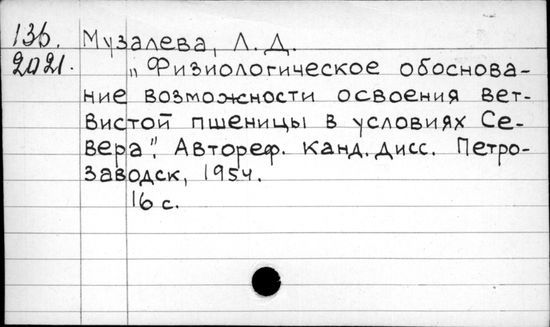 136. Музалева, Л. Д.
2021. "Физиологическое обоснова-
ние возможности освоения вет-
вистой пшеницы в условиях Се-
вера". Автореф. канд. дисс. Петро-
заводск, 1954.
16 с.